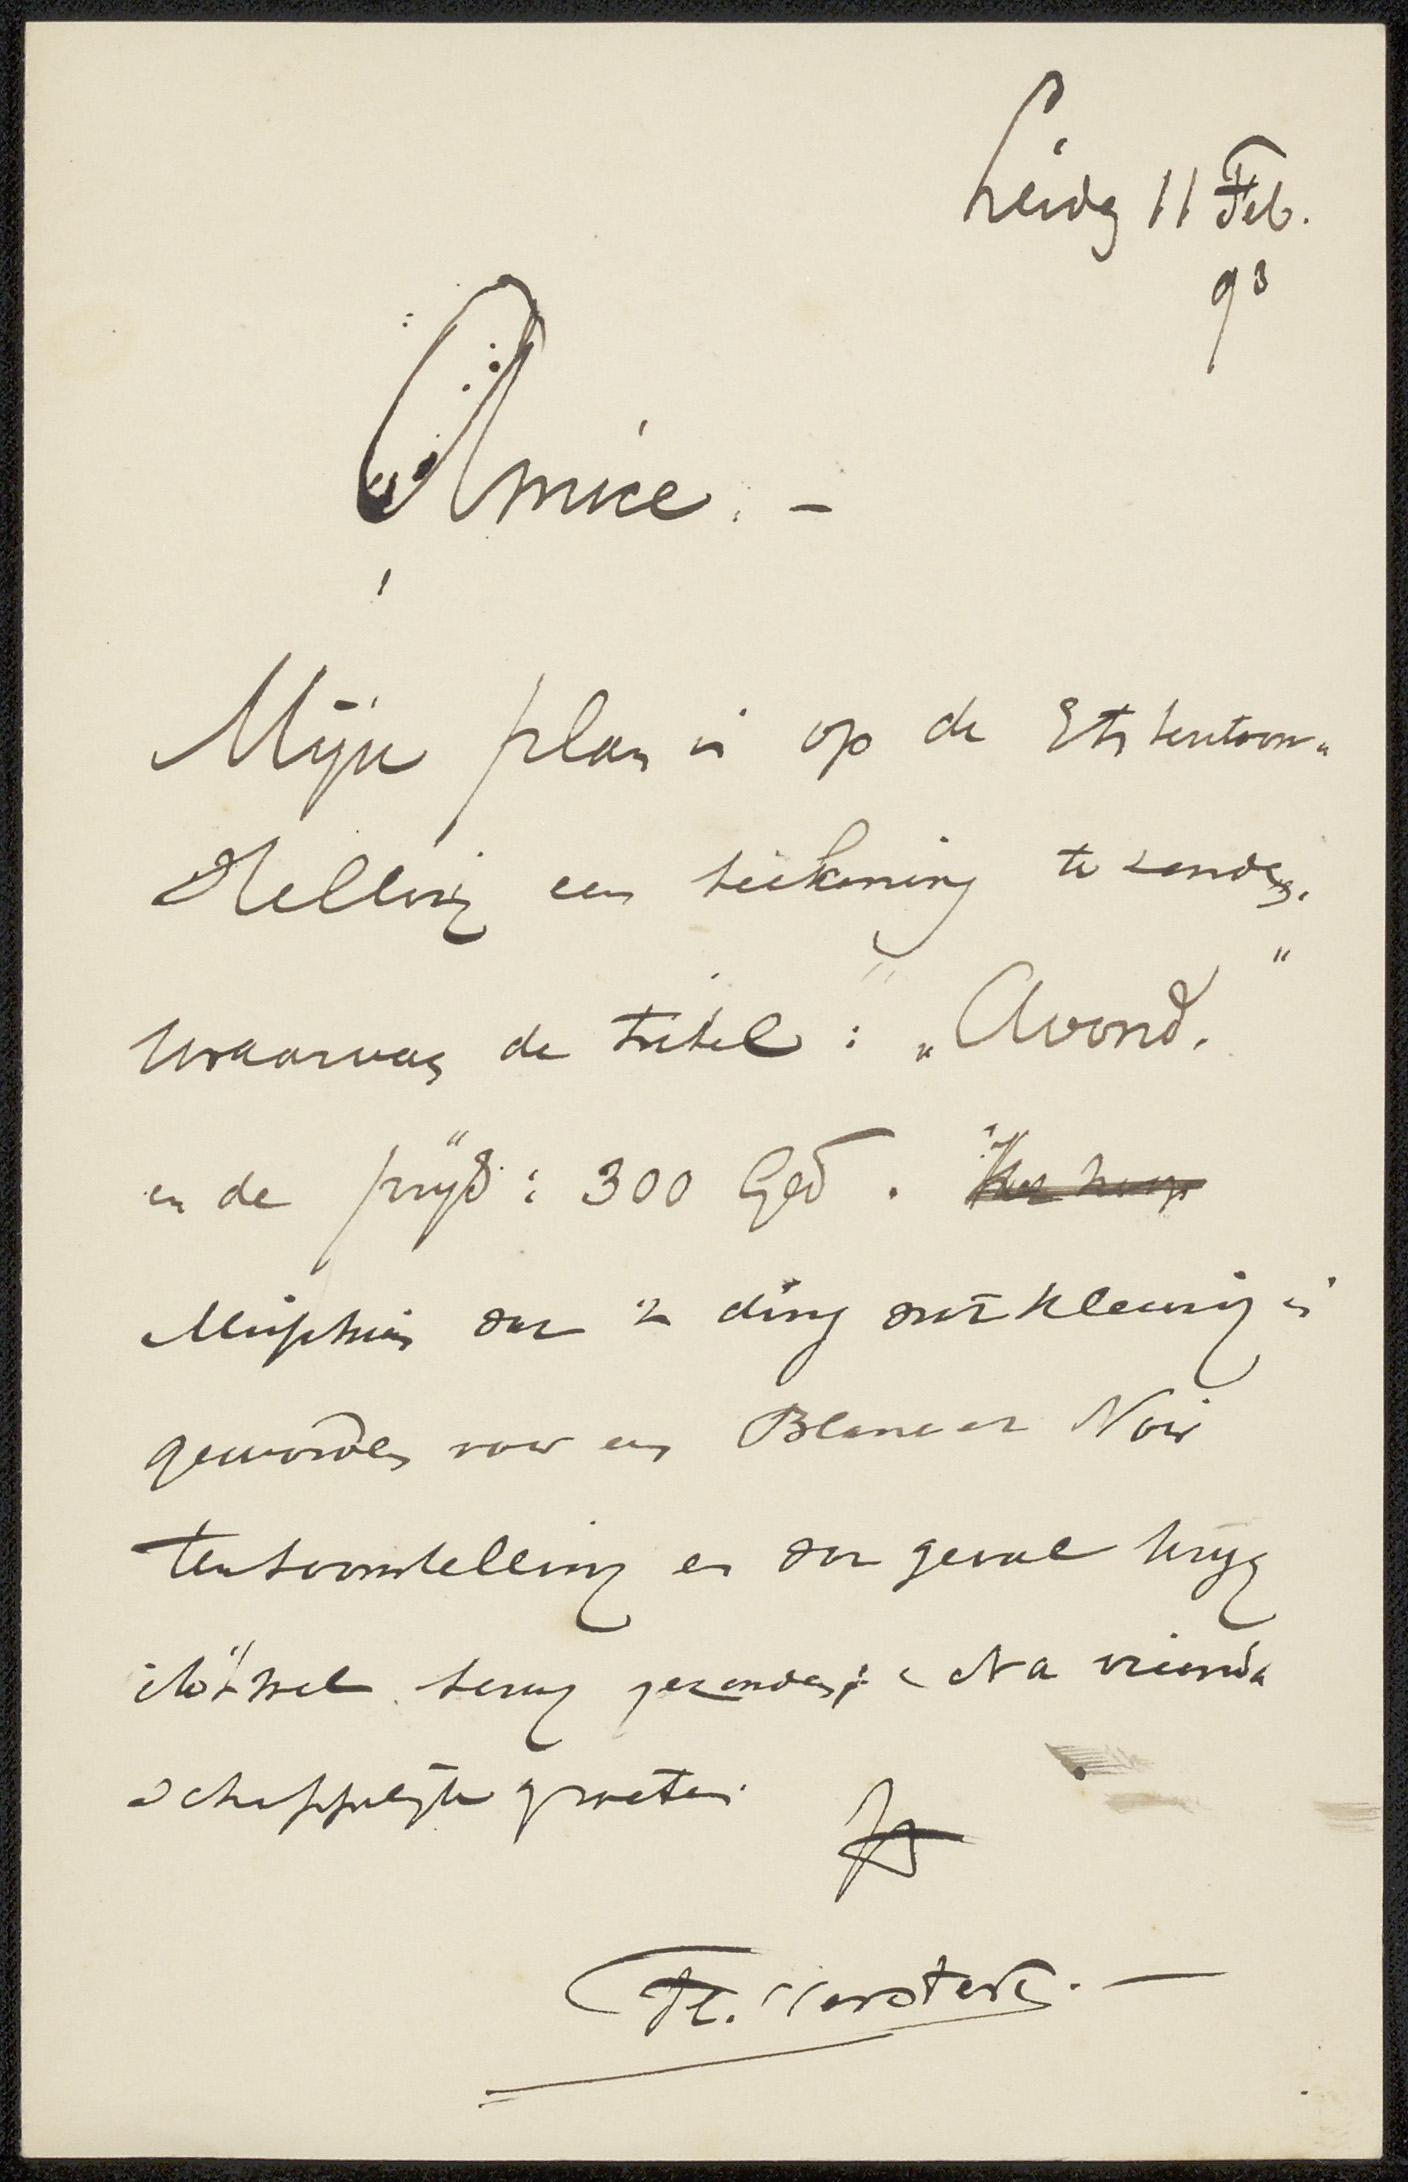 Leiden 11 Feb.
93
Amice. –
Mijn plan is op de Etstentoon„
stelling een teekening te zenden.
waarvan de titel: „Avond."
en de prijs: 300 Gld.
Misschien dat 't ding niet kleurig is
geworden voor een Blanc et Noir
tentoonstelling en dan geval krijg
ik 't wel terug gezonden. Na vriend„
schappelijke groeten